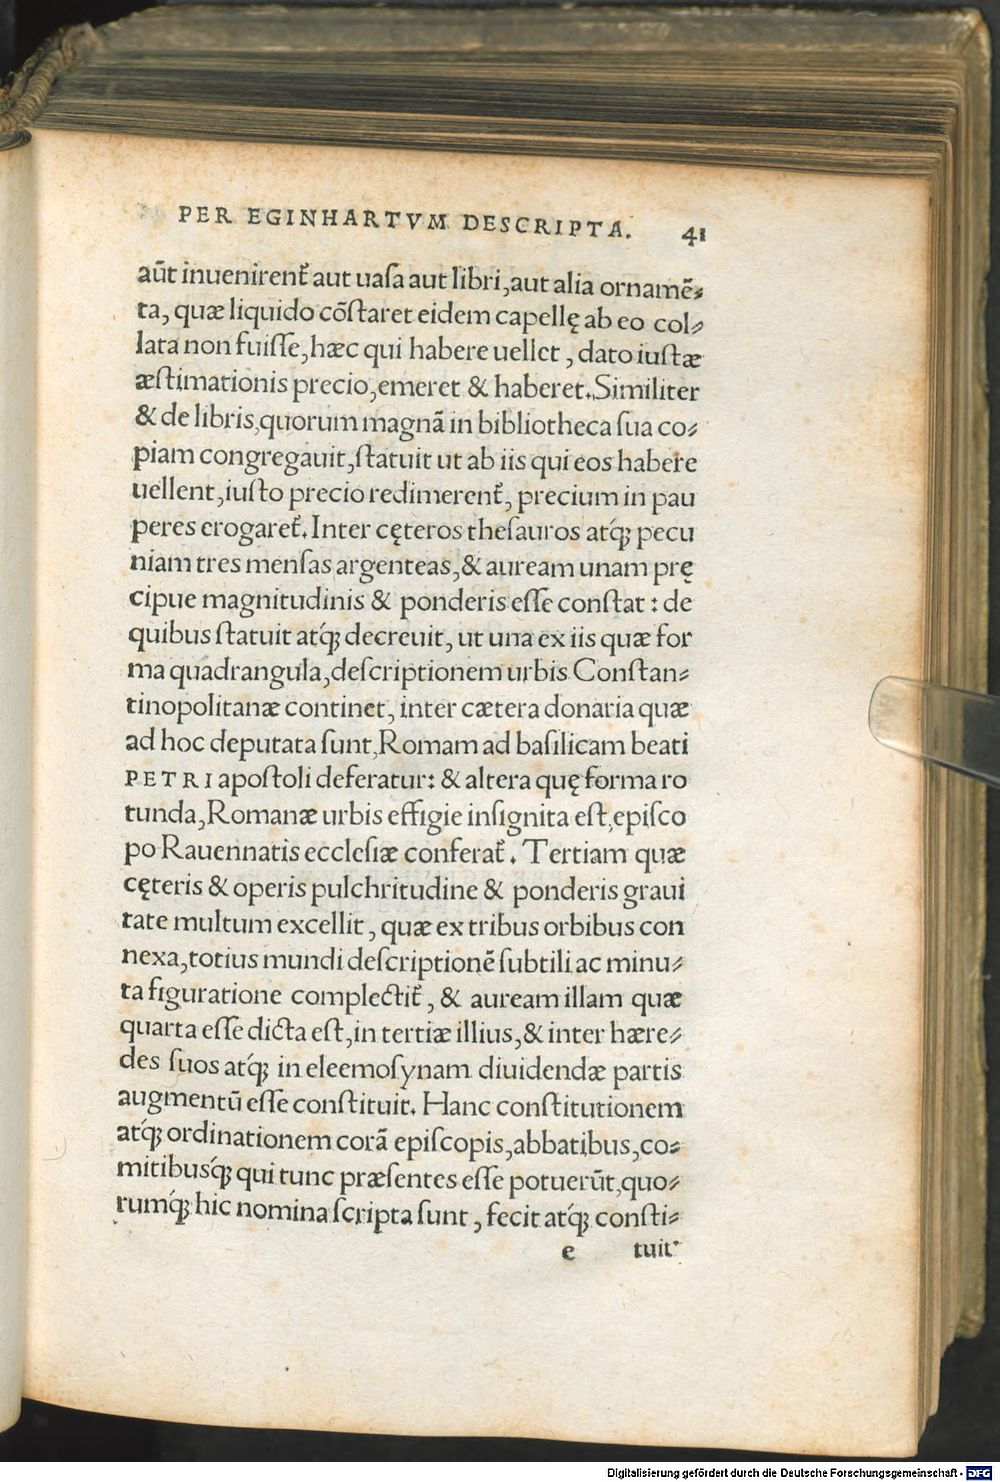 PER EGINHARTVM DESCRIPTA. 41
aūt inuenirent᷑ aut uaſa aut libri, aut alia ornamē⸗
ta, quæ liquido cōſtaret eidem capellę ab eo col⸗
lata non fuiſſe, hæc qui habere uellet, dato iuſtæ
æſtimationis precio, emeret & haberet. Similiter
& de libris, quorum magnā in bibliotheca ſua co⸗
piam congregauit, ſtatuit ut ab iis qui eos habere
uellent, iuſto precio redimerent᷑, precium in pau
peres erogaret᷑. Inter cęteros theſauros atq́ꝫ pecu
niam tres menſas argenteas, & auream unam prę
cipue magnitudinis & ponderis eſſe conſtat: de
quibus ſtatuit atq́ꝫ decreuit, ut una ex iis quæ for
ma quadrangula, deſcriptionem urbis Conſtan⸗
tinopolitanæ continet, inter cætera donaria quæ
ad hoc deputata ſunt, Romam ad baſilicam beati
PETRI apoſtoli deferatur: & altera quę forma ro
tunda, Romanæ urbis effigie inſignita eſt, epiſco
po Rauennatis eccleſiæ conferat᷑. Tertiam quæ
cęteris & operis pulchritudine & ponderis graui
tate multum excellit, quæ ex tribus orbibus con
nexa, totius mundi deſcriptionē ſubtili ac minu⸗
ta figuratione complectit᷑, & auream illam quæ
quarta eſſe dicta eſt, in tertiæ illius, & inter hære⸗
des ſuos atq́ꝫ in eleemoſynam diuidendæ partis
augmentū eſſe conſtituit. Hanc conſtitutionem
atq́ꝫ ordinationem corā epiſcopis, abbatibus, co⸗
mitibusq́ꝫ qui tunc præſentes eſſe potuerūt, quo⸗
rumq́ꝫ hic nomina ſcripta ſunt, fecit atq́ꝫ conſti⸗
e tuit
Digitalisierung gefördert durch die Deutsche Forschungsgemeinschaft - DFG